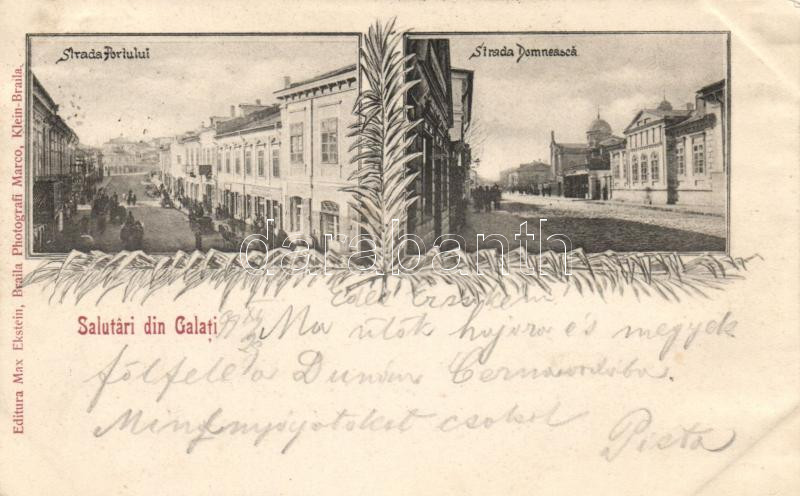 Strada Portului
Strada Domnească
Editura Max Ekstein, Braila Photografi Marco, Klein-Braila.
darabanth.com
Salutări din Galați
Edes
Ma ülök hajóra és megyek
fölfelé a Dunán Cernavodába.
Mindnyájotokat csokol
Pista